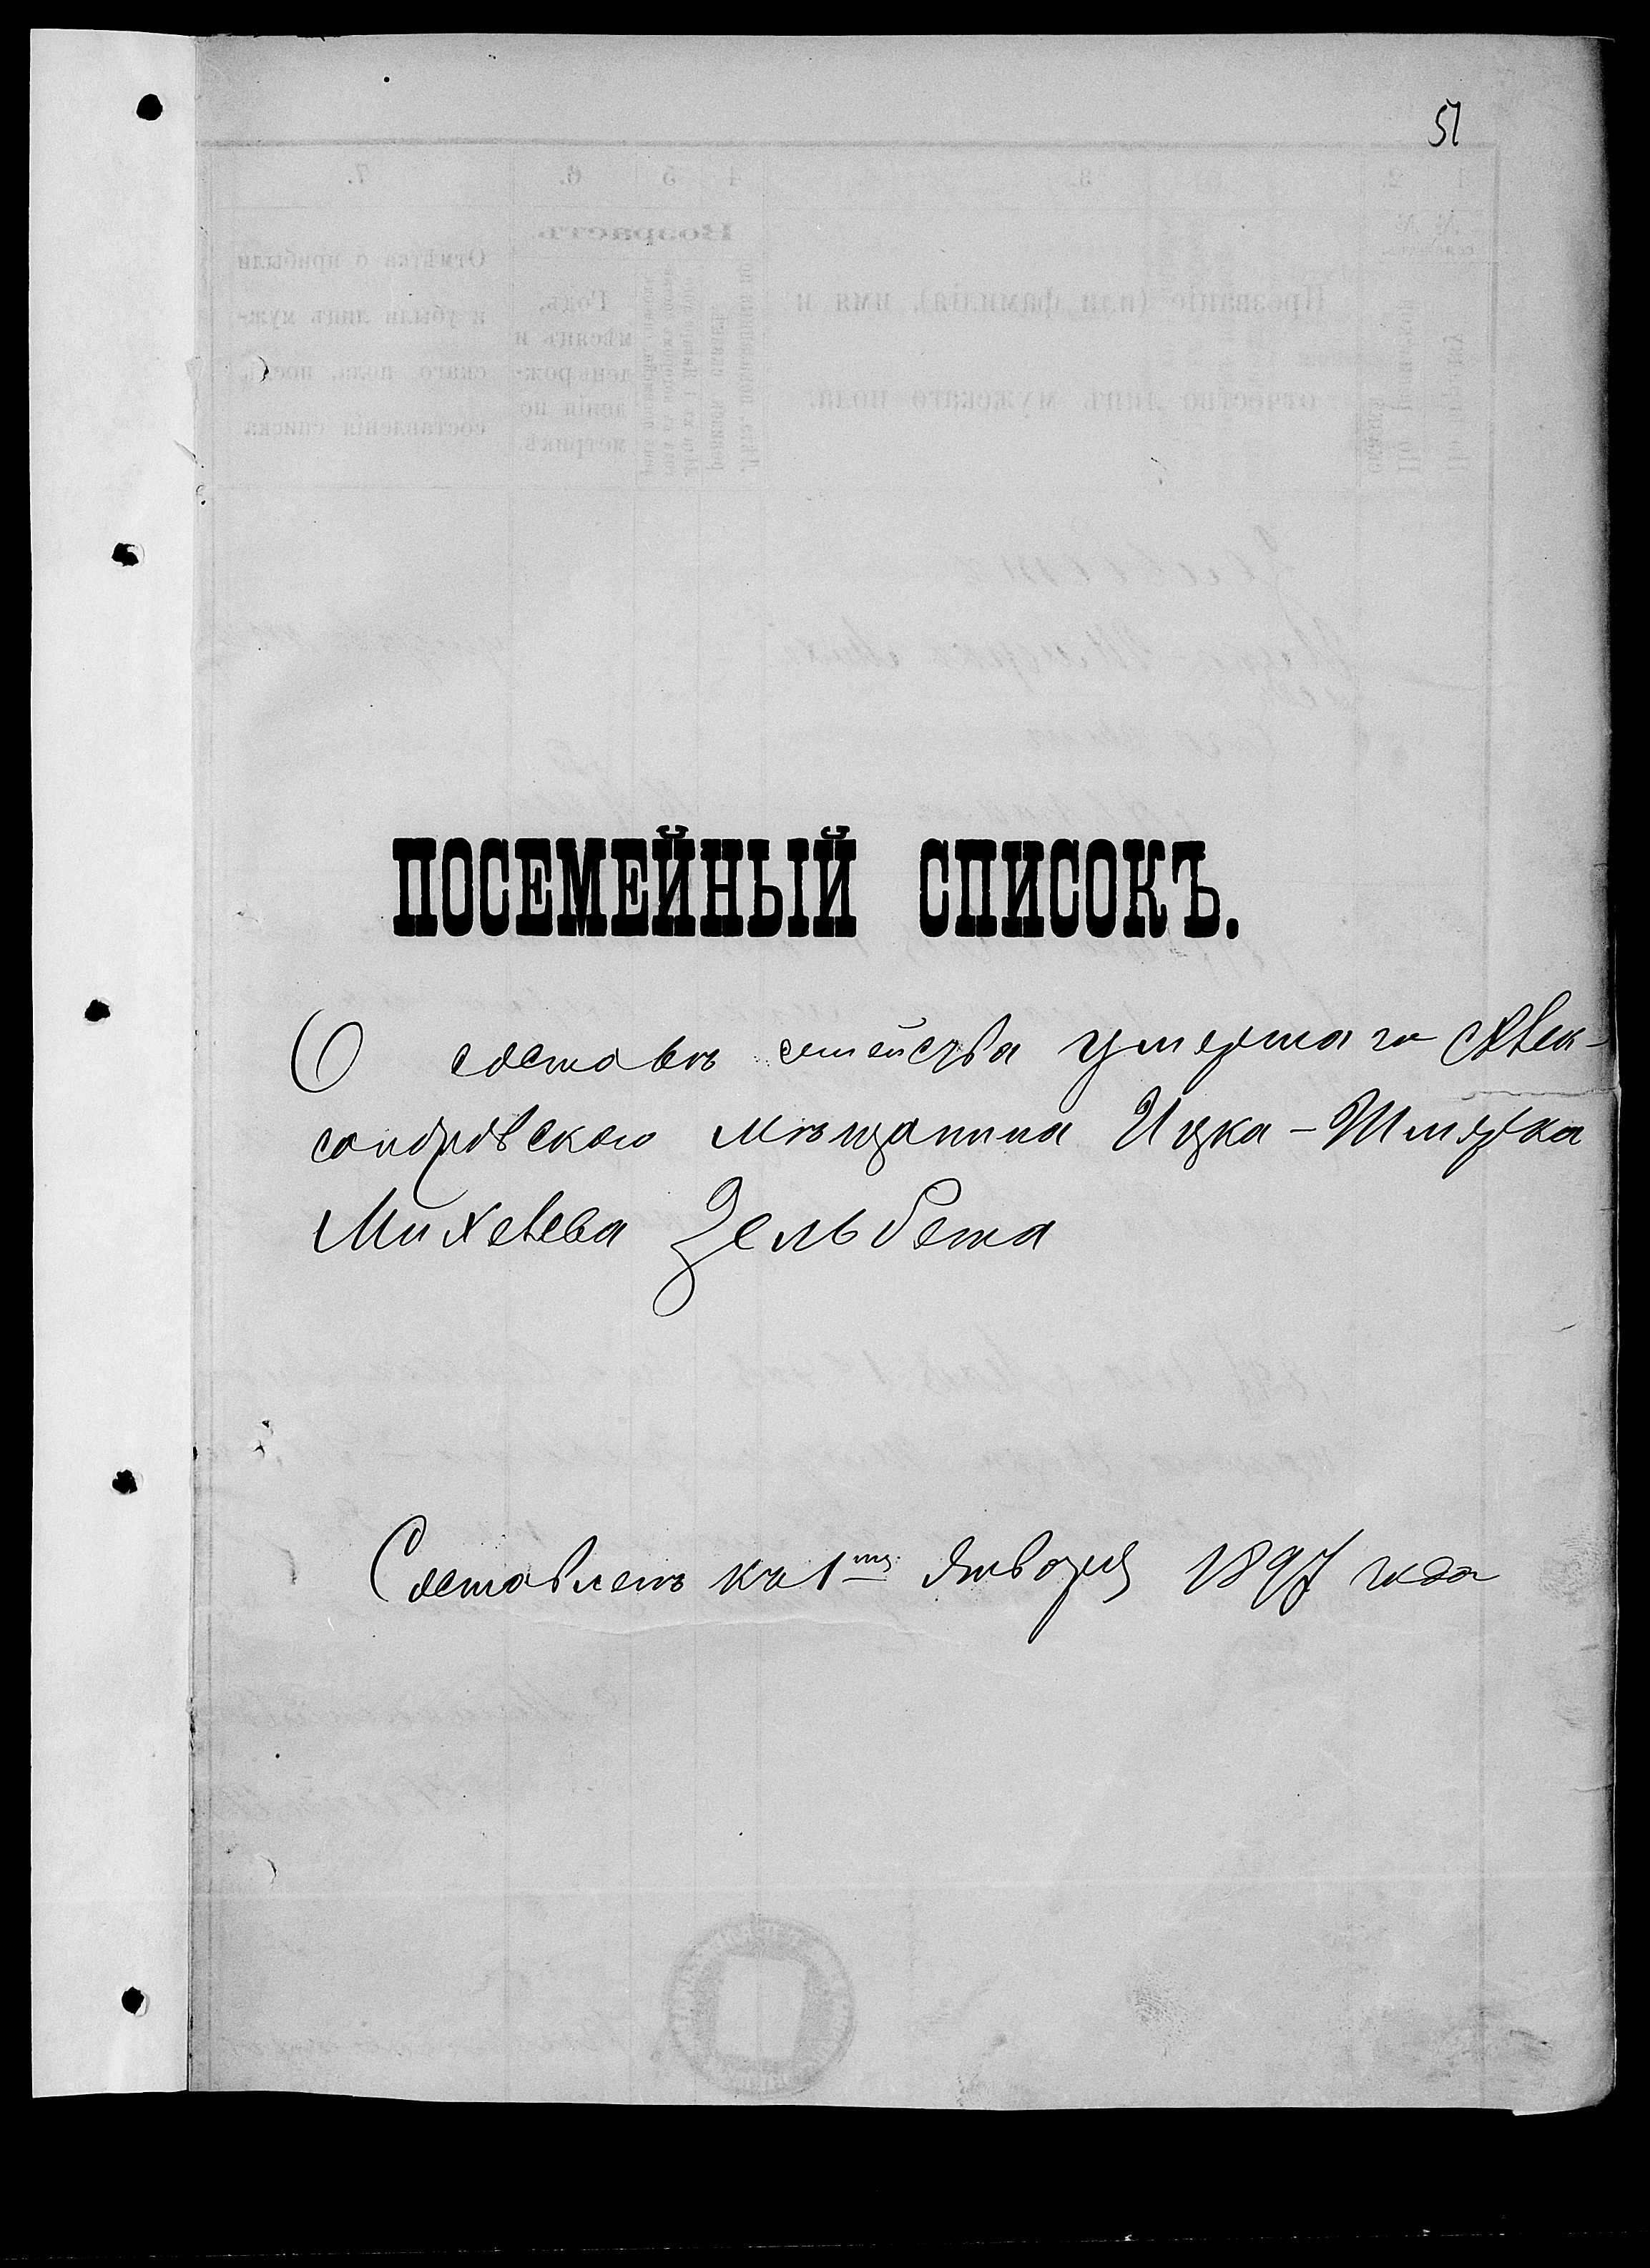 51
ПОСЕМЕЙНЫЙ СПИСОКЪ.
О составѣ семейства умершаго Алек-
сандровскаго мѣщанина Ицка-Шмерка
Михелева Зельбета
Составленъ къ 1му Января 1897 года